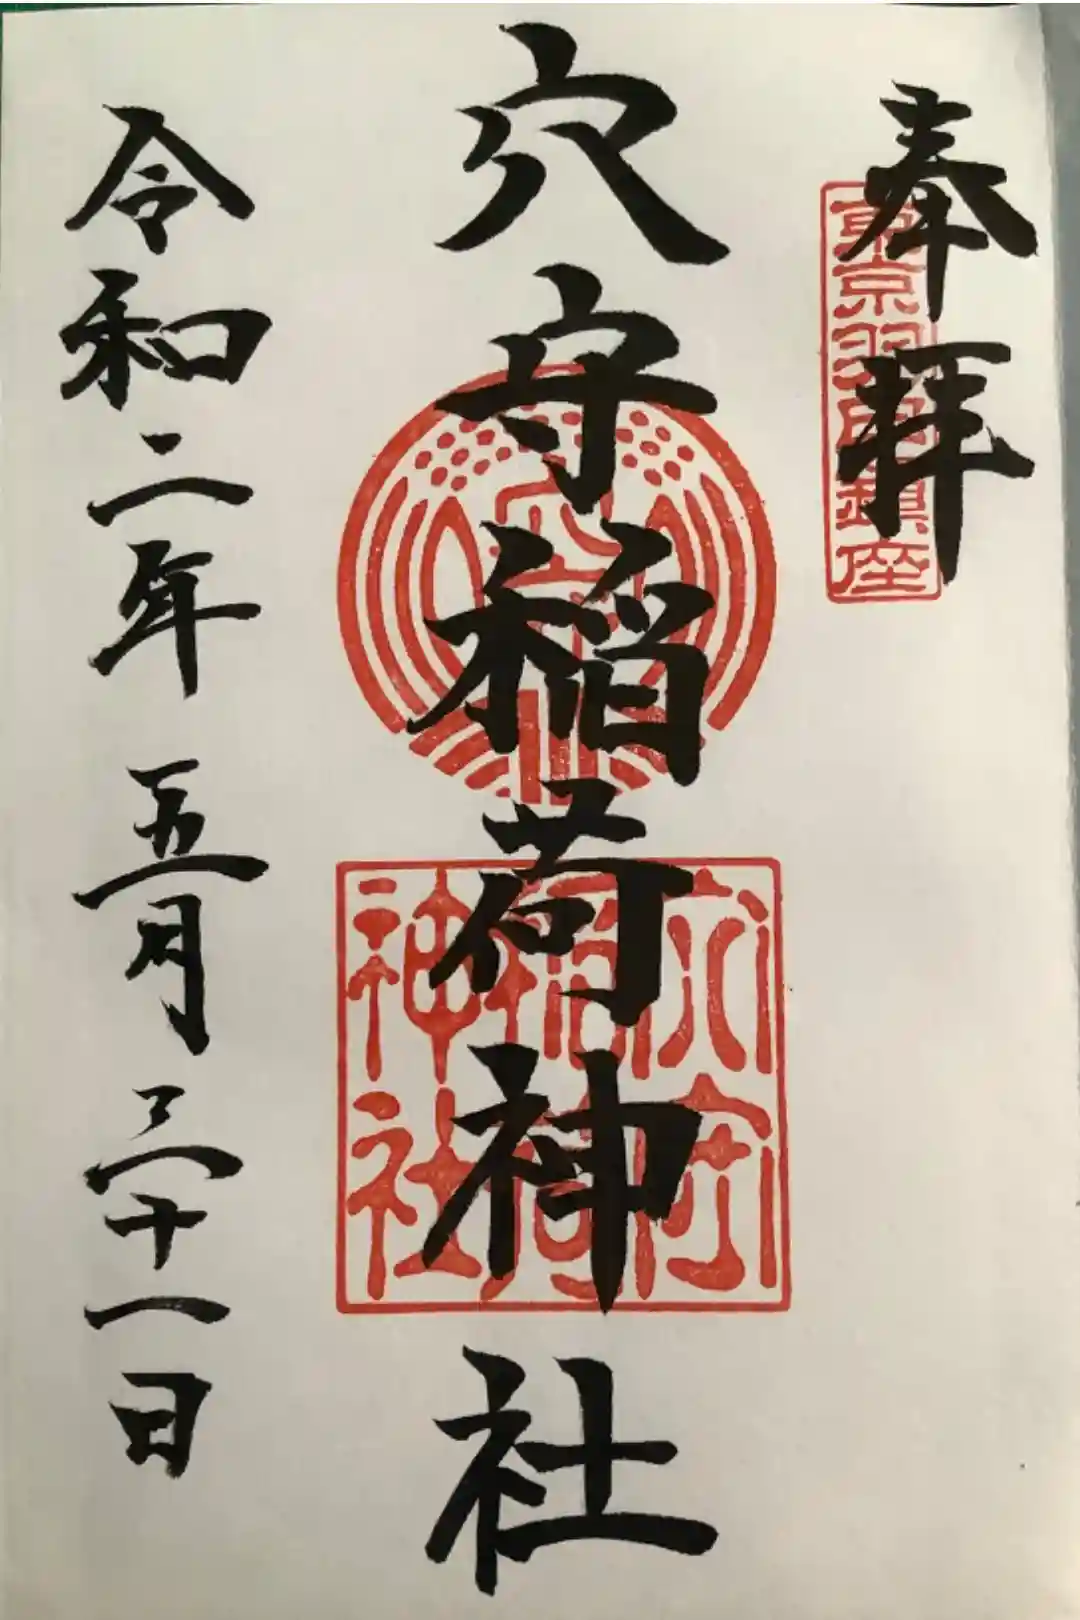 奉拝
東京羽田鎮座
穴守稲荷神社
穴守
穴守稲荷神社
令和二年五月三十一日